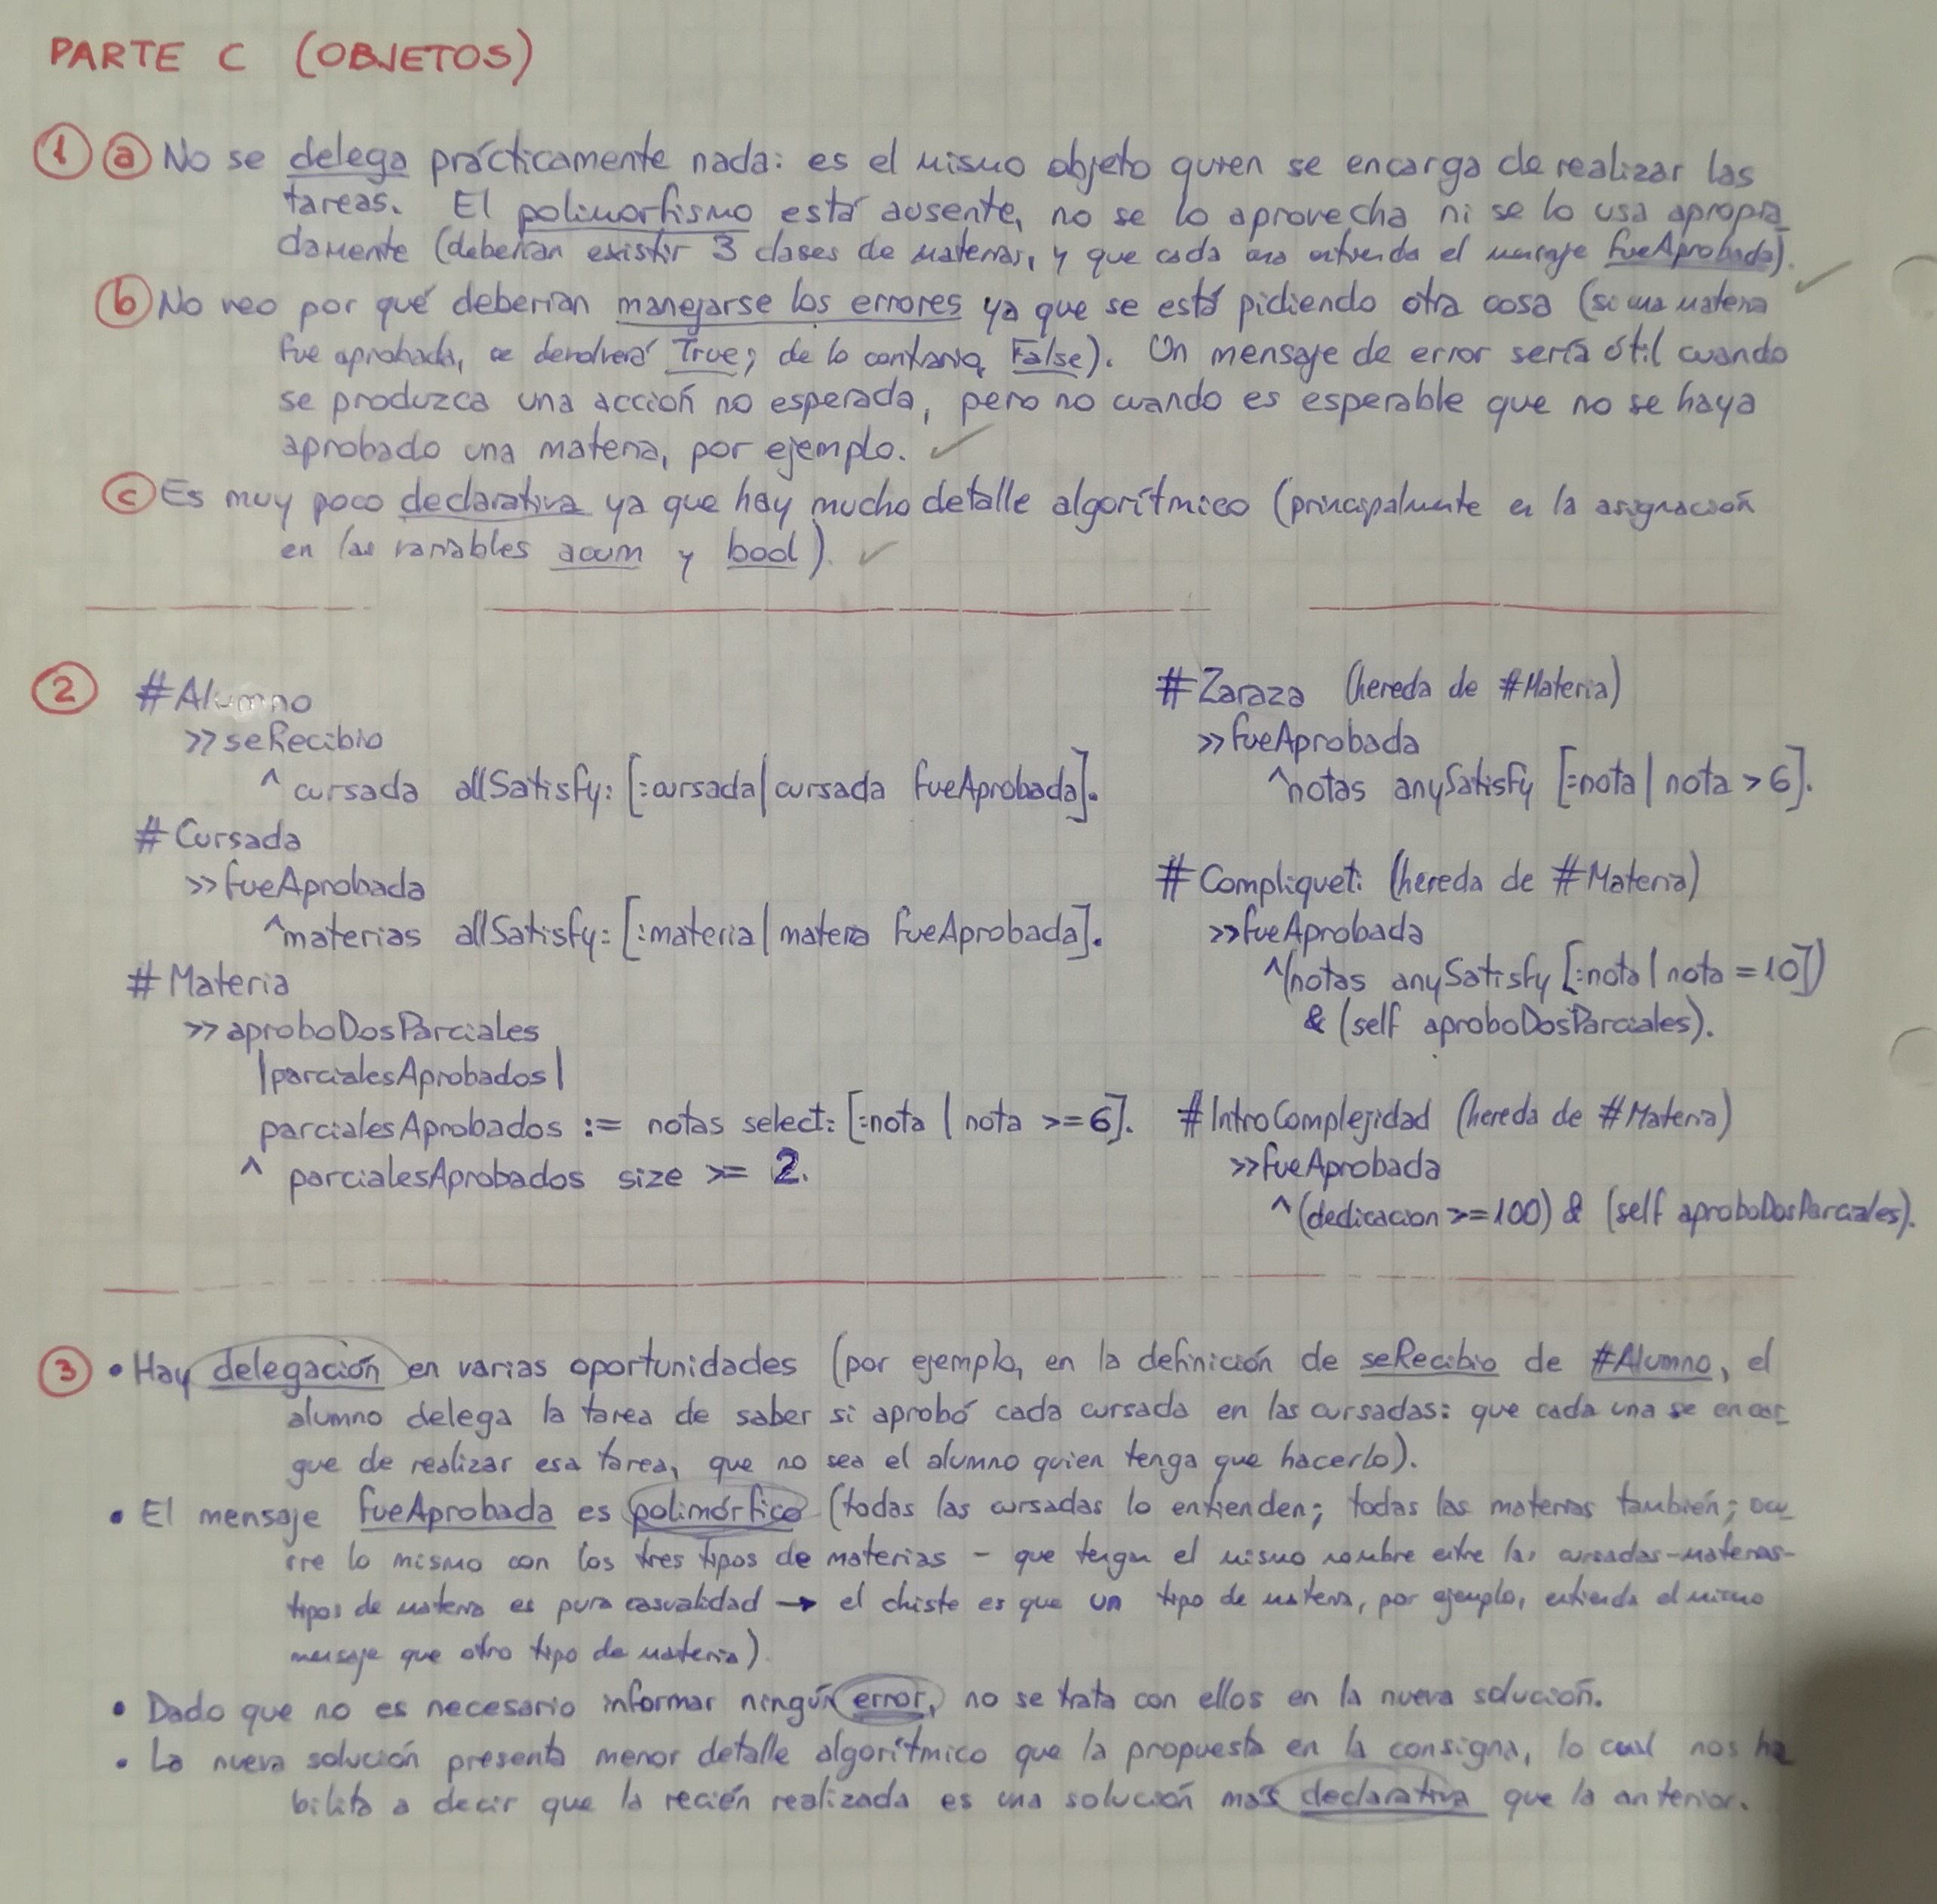 PARTE C (OBJETOS)
1 a No se delega prácticamente nada: es el mismo objeto quien se encarga de realizar las
tareas. El polimorfismo está ausente, no se lo aprovecha ni se lo usa apropia
damente (deberían existir 3 clases de materias, y que cada una entienda el mensaje fueAprobada).
b No veo por qué deberían manejarse los errores ya que se está pidiendo otra cosa (si una materia
fue aprobada, se devolverá True; de lo contrario, False). Un mensaje de error sería útil cuando
se produzca una acción no esperada, pero no cuando es esperable que no se haya
aprobado una materia, por ejemplo.
c Es muy poco declarativa ya que hay mucho detalle algorítmico (principalmente en la asignación
en las variables acum y bool).
2 #Alumno
>> seRecibio
^ cursada allSatisfy: [:cursada | cursada fueAprobada].
#Cursada
>> fueAprobada
^materias allSatisfy: [:materia | materia fueAprobada].
#Materia
>> aproboDosParciales
|parcialesAprobados|
parcialesAprobados := notas select: [:nota | nota >=6].
^ parcialesAprobados size >= 2.
#Zaraza (hereda de #Materia)
>> fueAprobada
^notas anySatisfy [:nota | nota > 6].
#Compliqueti (hereda de #Materia)
>>fueAprobada
^(notas anySatisfy [:nota | nota = 10])
& (self aproboDosParciales).
#IntroComplejidad (hereda de #Materia)
>>fueAprobada
^(dedicacion >=100) & (self aproboDosParciales).
3 • Hay delegación en varias oportunidades (por ejemplo, en la definición de seRecibio de #Alumno, el
alumno delega la tarea de saber si aprobó cada cursada en las cursadas: que cada una se encar
gue de realizar esa tarea, que no sea el alumno quien tenga que hacerlo).
• El mensaje fueAprobada es polimórfico (todas las cursadas lo entienden; todas las materias también; ocu
rre lo mismo con los tres tipos de materias - que tengan el mismo nombre entre las cursadas-materias-
tipos de materia es pura casualidad → el chiste es que un tipo de materia, por ejemplo, entienda el mismo
mensaje que otro tipo de materia).
• Dado que no es necesario informar ningún error, no se trata con ellos en la nueva solución.
• La nueva solución presenta menor detalle algorítmico que la propuesta en la consigna, lo cual nos ha
bilita a decir que la recién realizada es una solución más declarativa que la anterior.